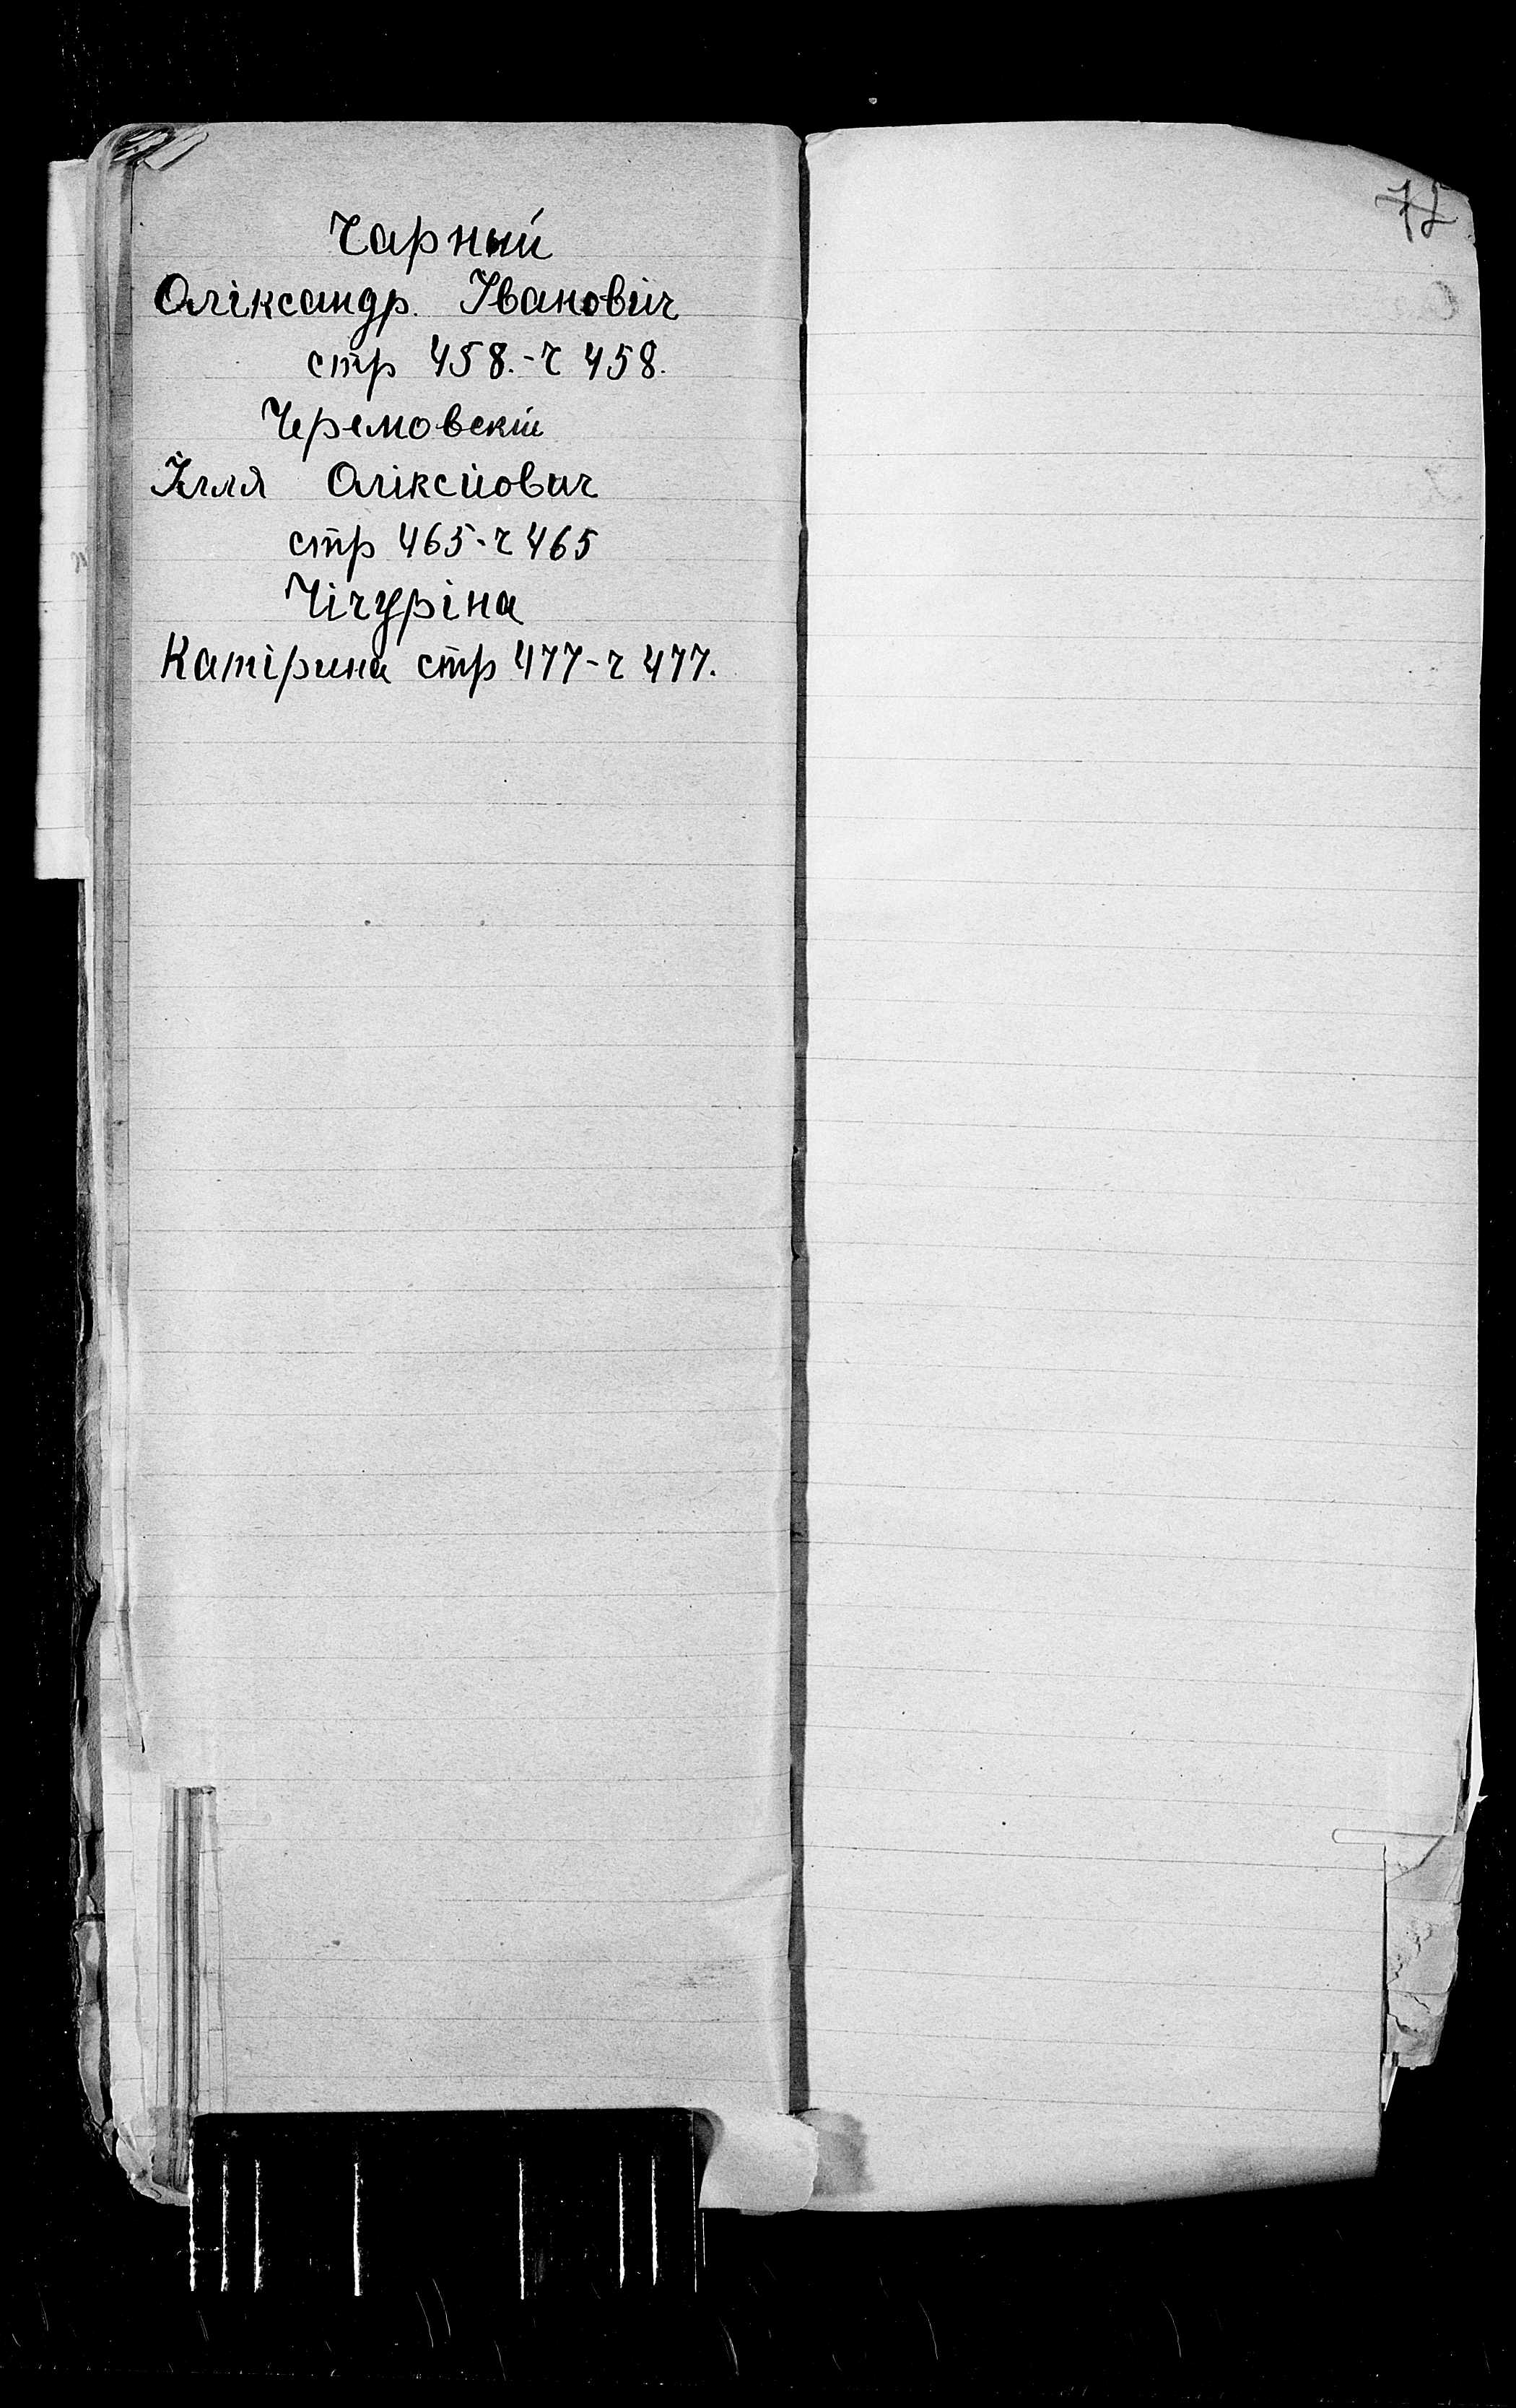 Чарный
Оліксандр. Івановіч
стр 458.-ч 458.
Черемовскій
Ілля Оліксійович
стр 465-ч 465
Чічуріна
Катірина стр 477-ч 477.